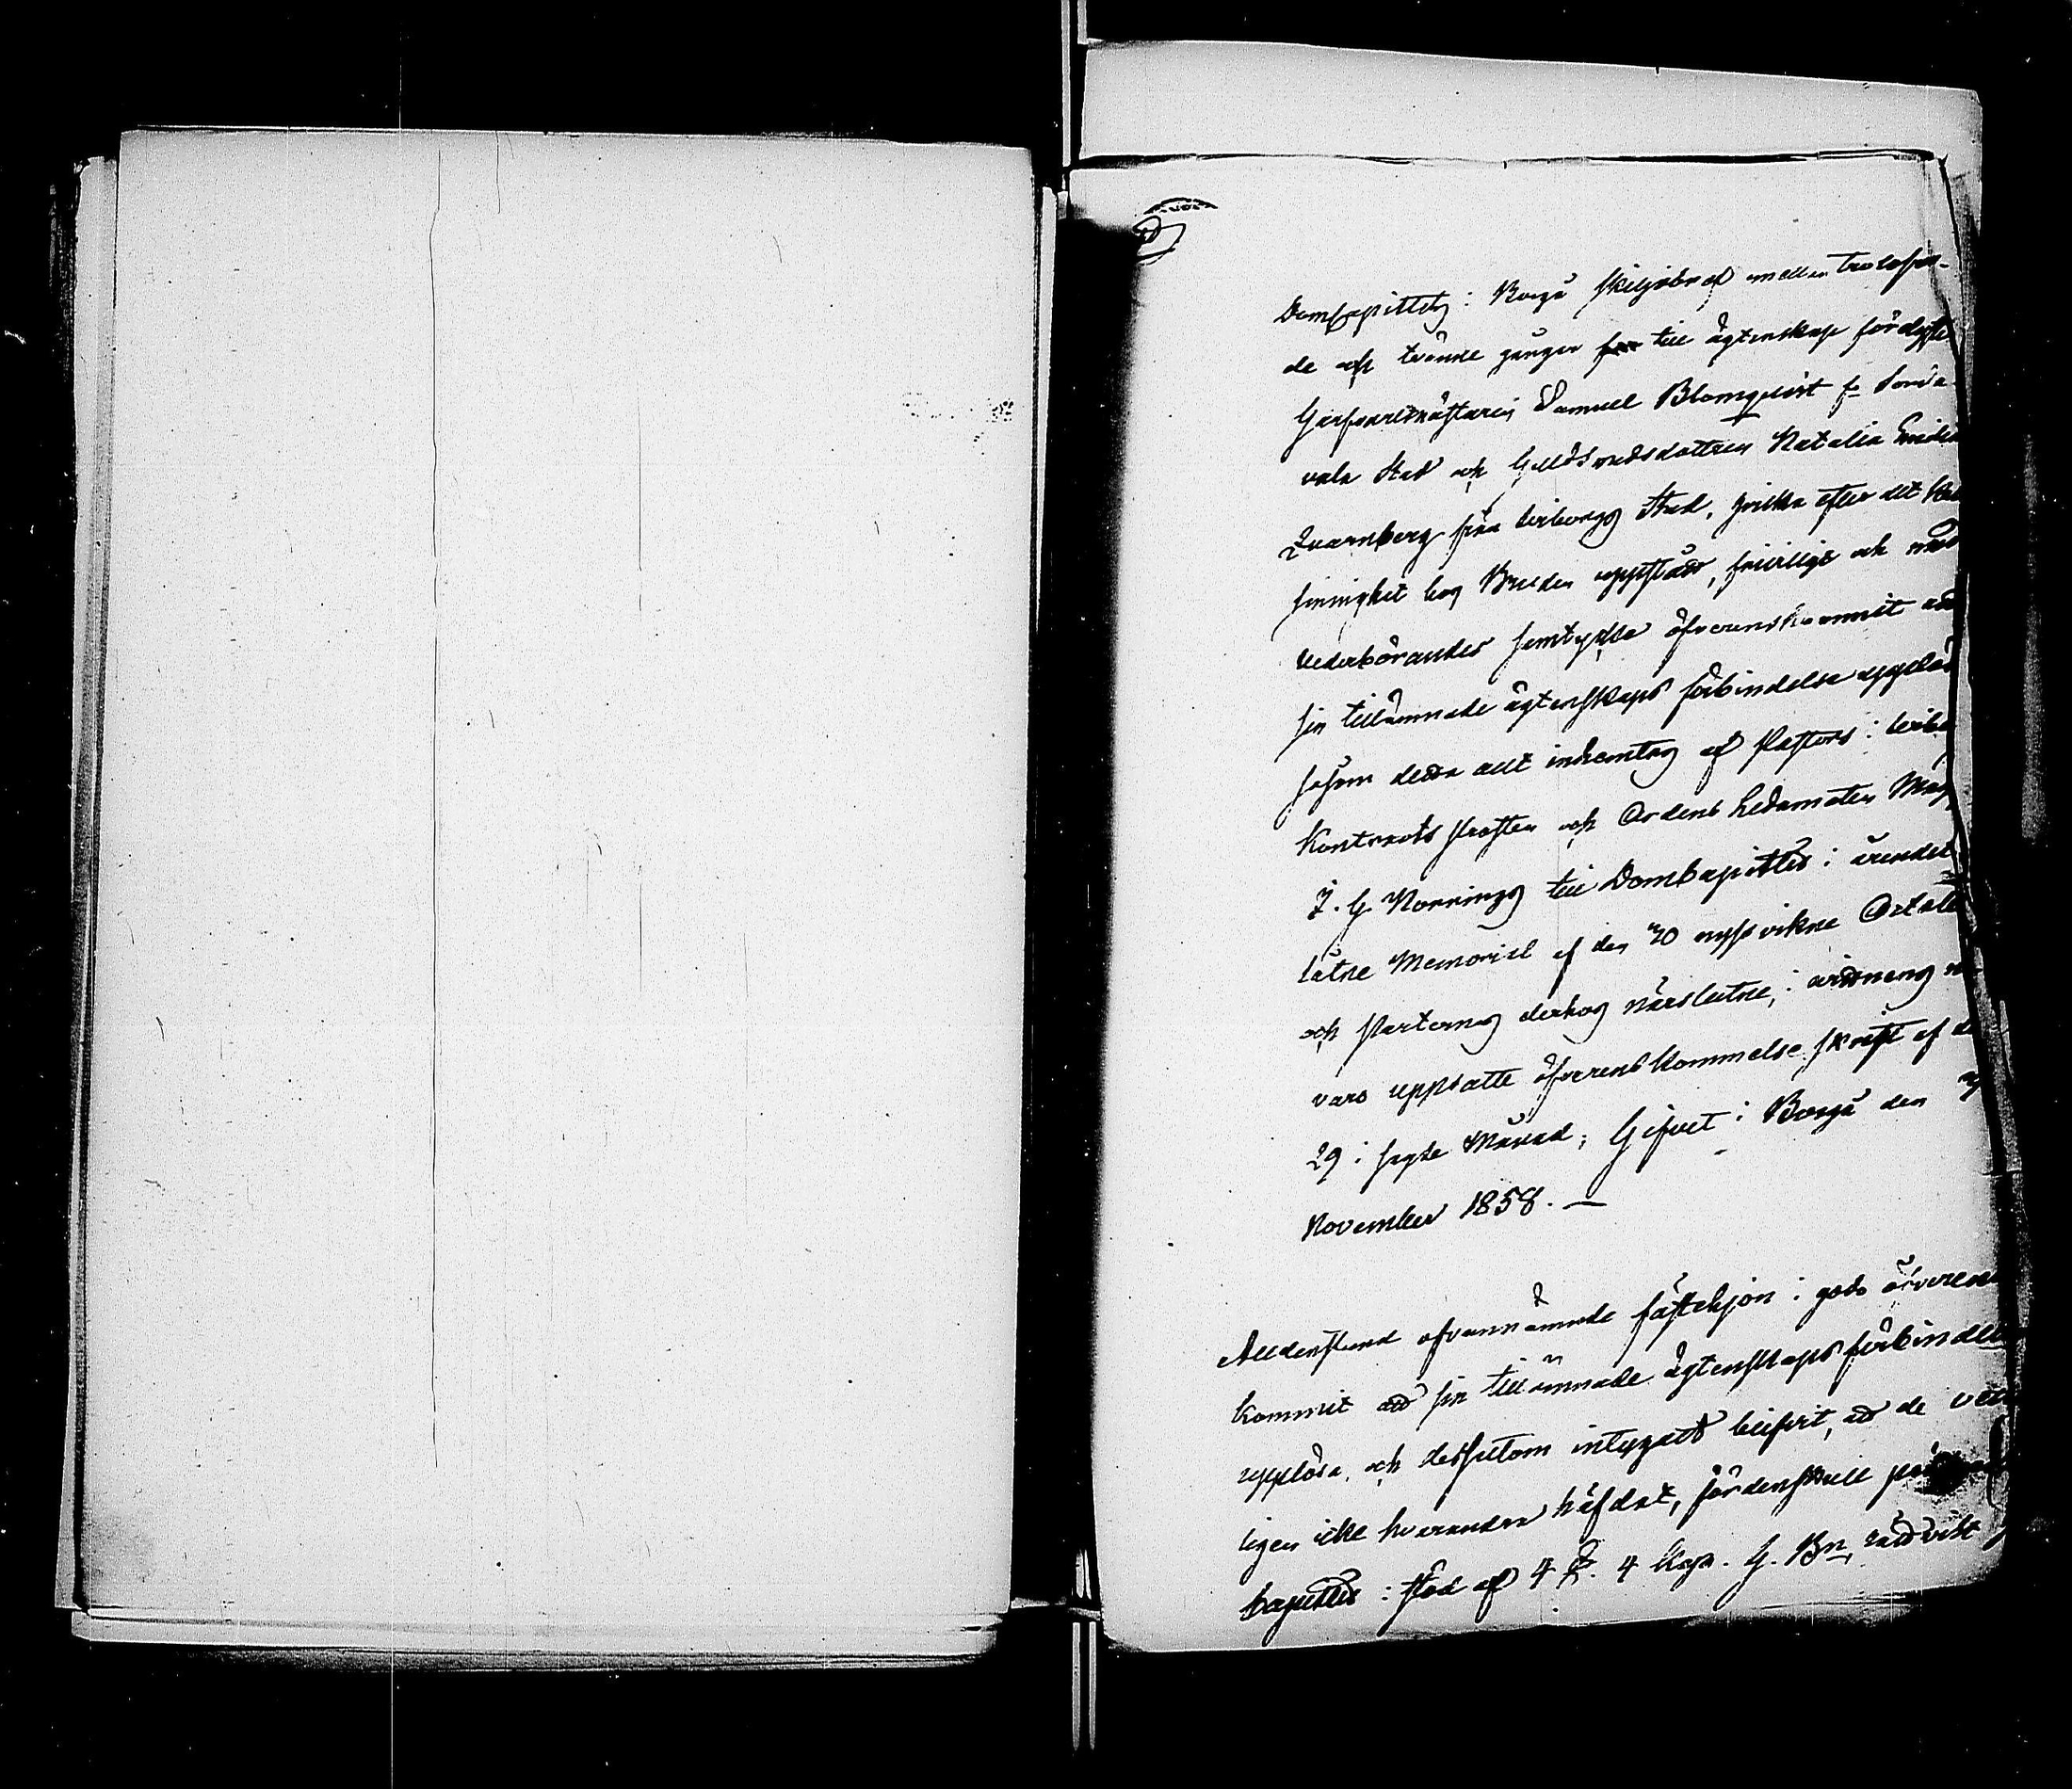 Domcapitlets i Borgå skiljobref mellan trolofva-
de och trenne gånger för till ägtenskap förlyste
Garfvaremästaren Samuel Blomqvist fr Sorda-
vala Stad och Guldsmedsdottren Natalia
Qvarnberg från Wiborgs Stad, hvilka efter det
sinnighet hos Bruden uppstått, frivilligt och med
vederbörandes samtycke öfverenskommit att
sin tillämnade ägtenskaps förbindelse upplösa
såsom detta allt inhemtas af Pastors i
Kontrakts Prosten och Ordens Ledamoten Mag
J. G. Norrings till Domkapitlet i ärendet
låtne Memorial af den 20 nyss vikne October
och Parternas derhos närslutne, i vittnens
varo uppsatte öfverenskommelse skrift af den
29 i sagde Månad; Gifvet i Borgå den
November 1858. —
Alldenstund ofvannämnde fästehjon i godo öfverens
kommit att sin tillämnade ägtenskaps förbindelse
upplösa, och dessutom intygadt blifvit, att de
ligen icke hvarandra häfdat, fördenskull
kapitlet i stöd af 4 §. 4 Kap. G. Bn, rättvist